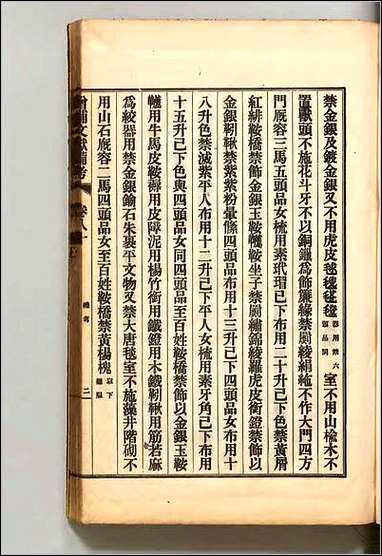 禁金銀及鍍金銀又不用虎皮毬㲪毾㲪器用禁六頭品同室不用山楡木不
置獸頭不施花斗牙不以銅鑞爲飾簾緣禁罽綾絹絁不作大門四方
門廐容三馬五頭品女梳用素玳瑁已下布用二十升已下色禁黃屑
紅緋鞍橋禁飾金銀玉鞍韉鞍坐子禁罽繡錦綾羅虎皮銜鐙禁飾以
金銀靷鞦禁紫紫粉暈絛四頭品布用十三升已下四頭品女布用十
八升色禁滅紫平人布用十二升已下平人女梳用素牙角已下布用
十五升已下色與四頭品女同四頭品至百姓鞍橋禁飾以金銀玉鞍
韉用牛馬皮鞍褥用皮障泥用楊竹銜用鐵鐙用木鐵靷鞦用筋若麻
爲絞器用禁金銀鍮石朱裏平文物又禁大唐毯室不施藻井階砌不
用山石廐容二馬四頭品女至百姓鞍橋禁黃楊槐以下
增補文獻備考 卷八十 禮考 二